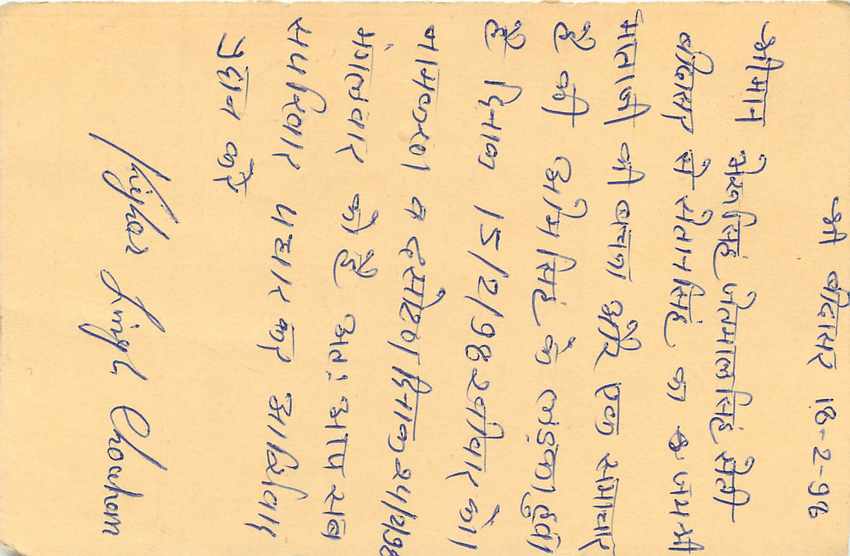 श्री बीदासर 18-2-98
श्रीमान भैरूसिंह, जेतमालसिंह सेती
बीदासर से सेतानसिंह का जयश्री
माताजी की बचणां और एक समाचार
है की ओमसिंह के लड़का हुवा
है दिनाक 15/2/98 रवीवार को।
नामकरण व दसोटण दिनाक 24/2/98
मंगलवार को है अतः आप सब
सपरिवार पधार कर आर्शिवाद
प्रदान करे
Kishor Singh Chouhan